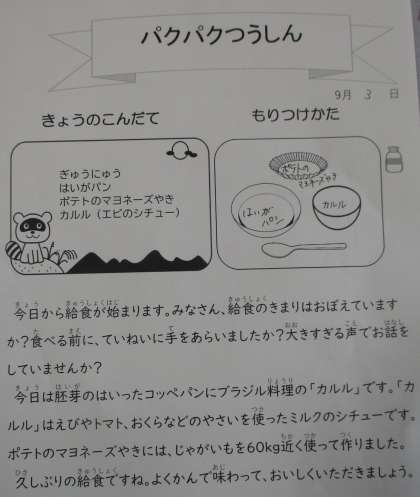 パクパクつうしん
9月 3 日
きょうのこんだて
もりつけかた
ぎゅうにゅう
はいがパン
ポテトのマヨネーズやき
カルル（エビのシチュー）
ポテトの
マヨネーズやき
はいが
パン
カルル
今日から給食が始まります。みなさん、給食のきまりはおぼえています
か？食べる前に、ていねいに手をあらいましたか？大きすぎる声でお話を
していませんか？
今日は胚芽のはいったコッペパンにブラジル料理の「カルル」です。「カ
ルル」はえびやトマト、おくらなどのやさいを使ったミルクのシチューです。
ポテトのマヨネーズやきには、じゃがいもを60kg近く使って作りました。
久しぶりの給食ですね。よくかんで味わって、おいしくいただきましょう。